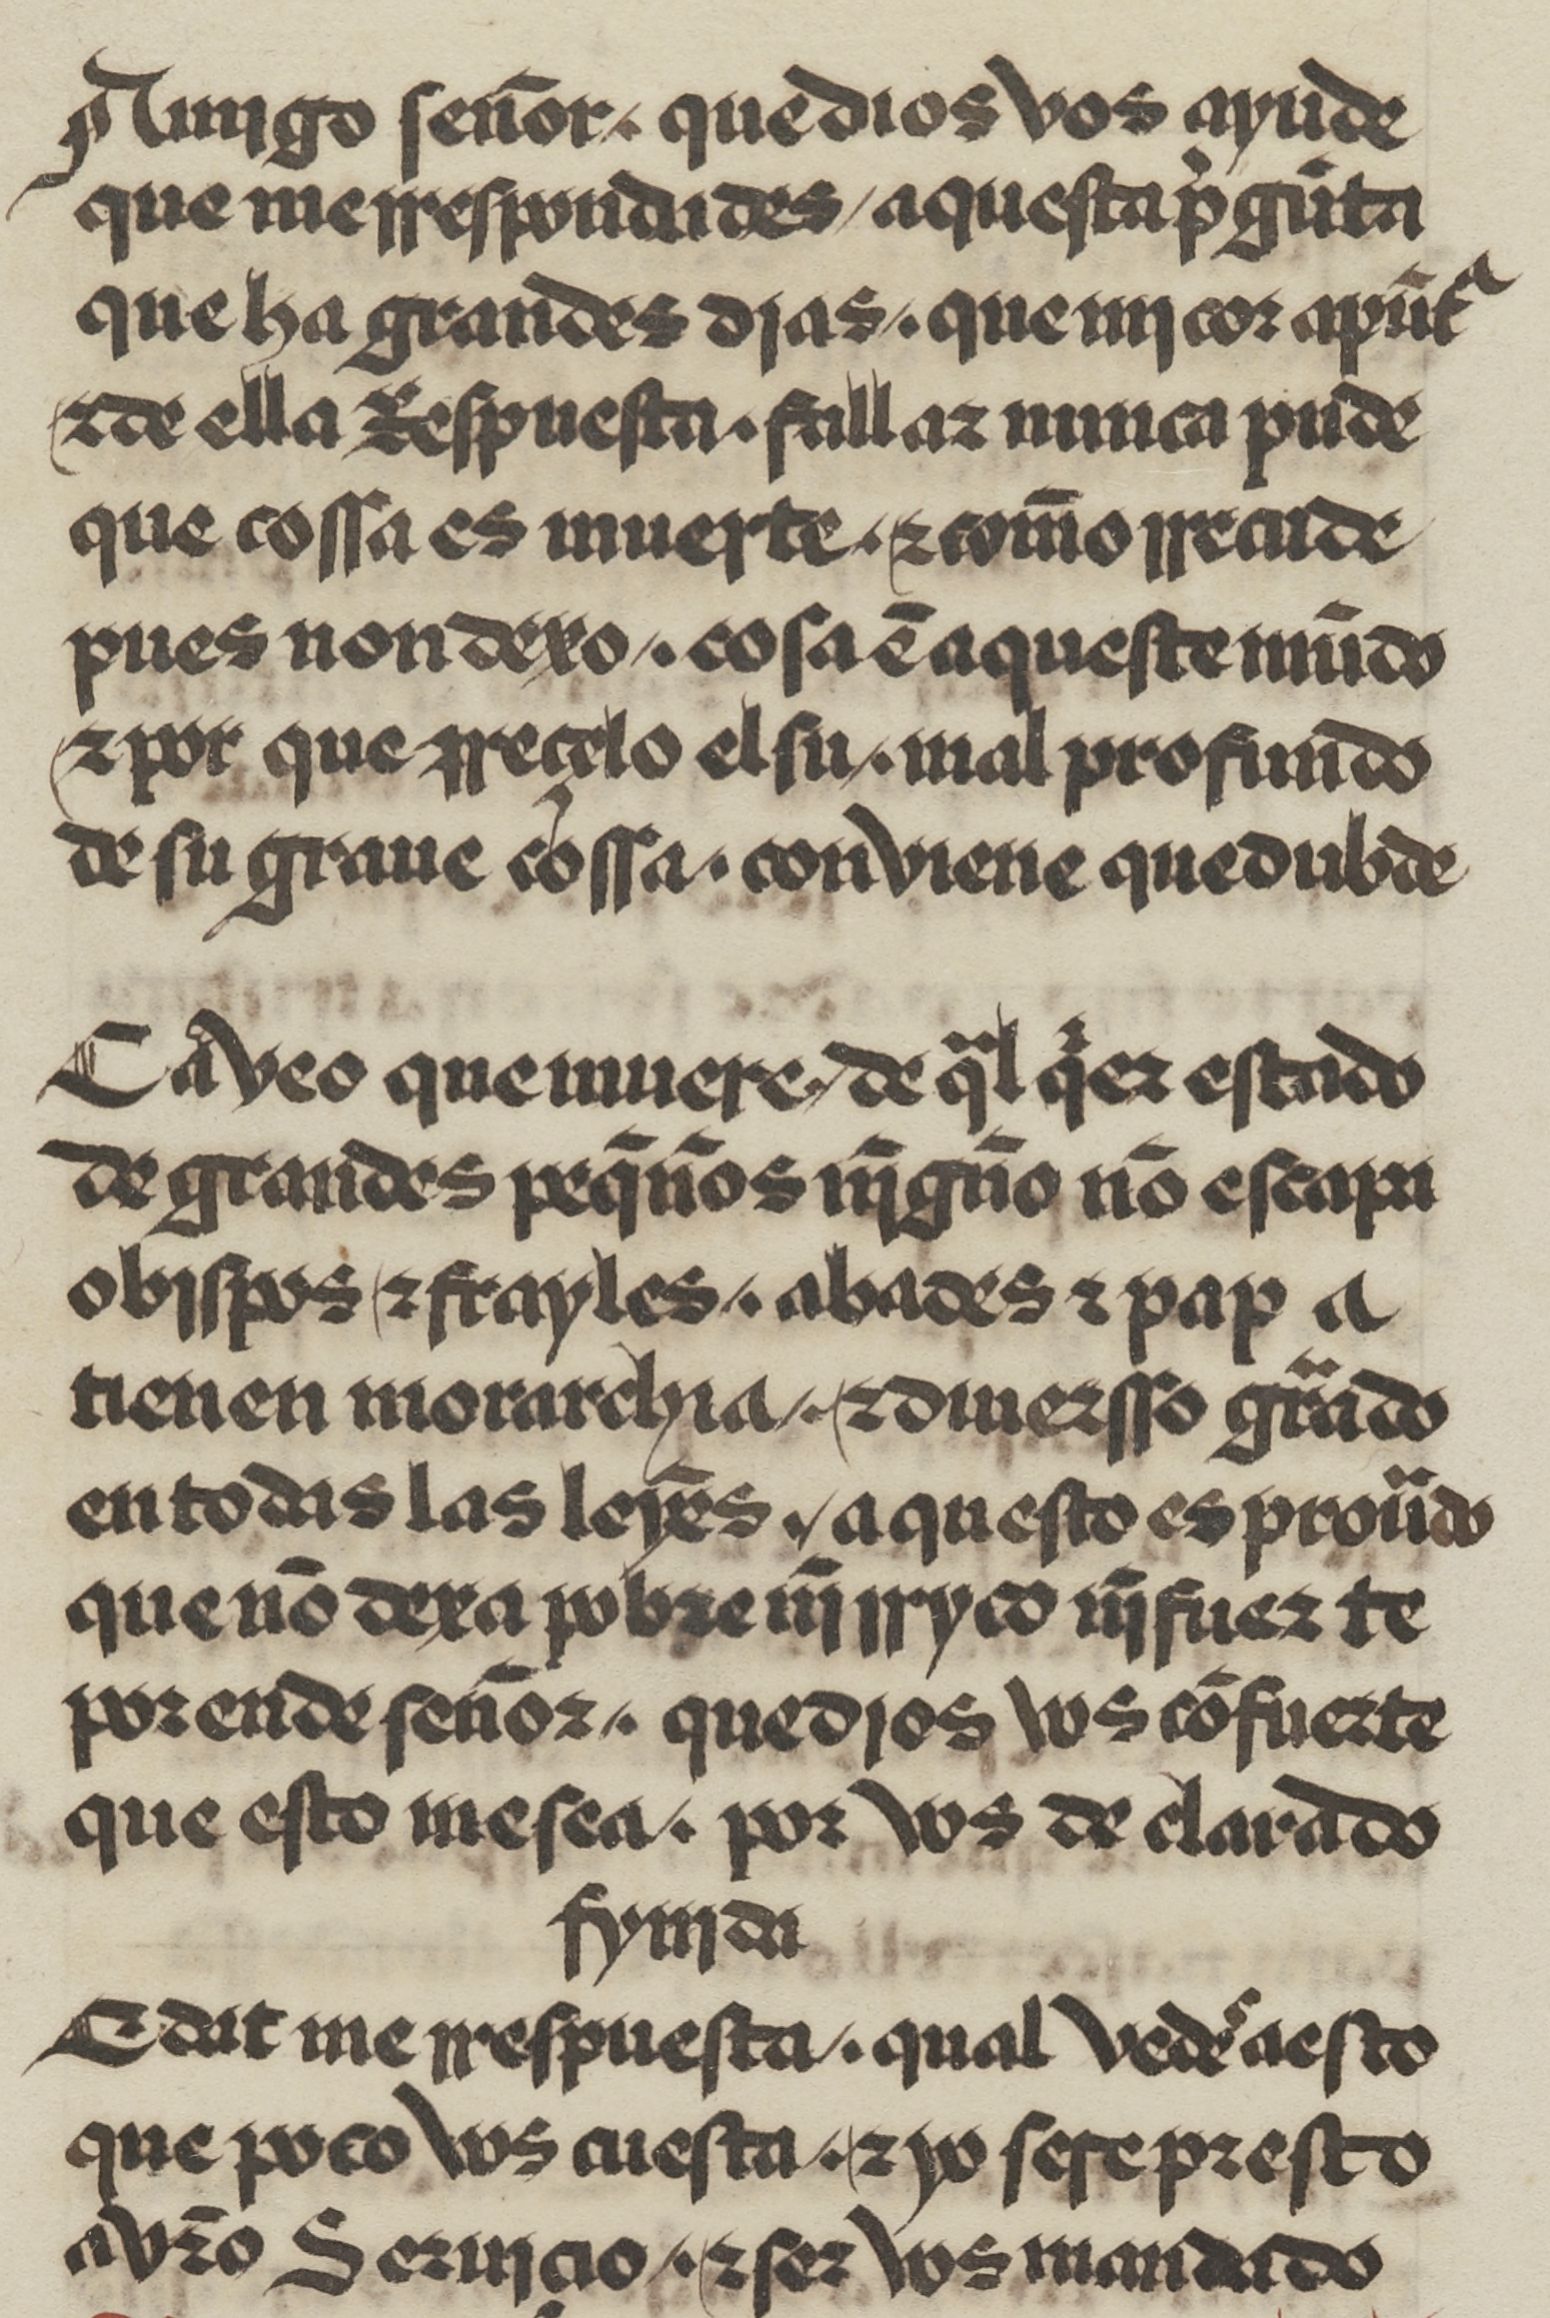 Amigo señor /. que dios vos ayude
que me rrespondades / aquesta p̉gũta
que ha grandes dias /. que mj cor apũtᵃ
⁊ de ella Respuesta . fallar nunca pude
que cossa es muerte . ⁊ com̃o rrecude
pues non dexo /. cosa ẽ aqueste mũdo
⁊ por que rreçelo el su /. mal profundo
de su graue cossa . conviene que dubde
Ca veo que muere / de q̃l q̉er estado
de grandes peq̃ños nj̃gũo nõ escapa
obispos ⁊ frayles /. abades ⁊ papa
tienen morarchia /. ⁊ diuersso grãdo
en todas las leyẽs ./ aquesto es prouãdo
que nõ dexa pobre nj̃ rryco nj̃ fuerte
por ende señor /. que dios vos cõfuerte
que esto me sea /. por vos declarado
fynjda
E dat me rrespuesta /. qual vedeˢ aesto
que poco vos cuesta /. ⁊ yo sere presto
a vr̃o Serujcio /. ⁊ ser vos mandado